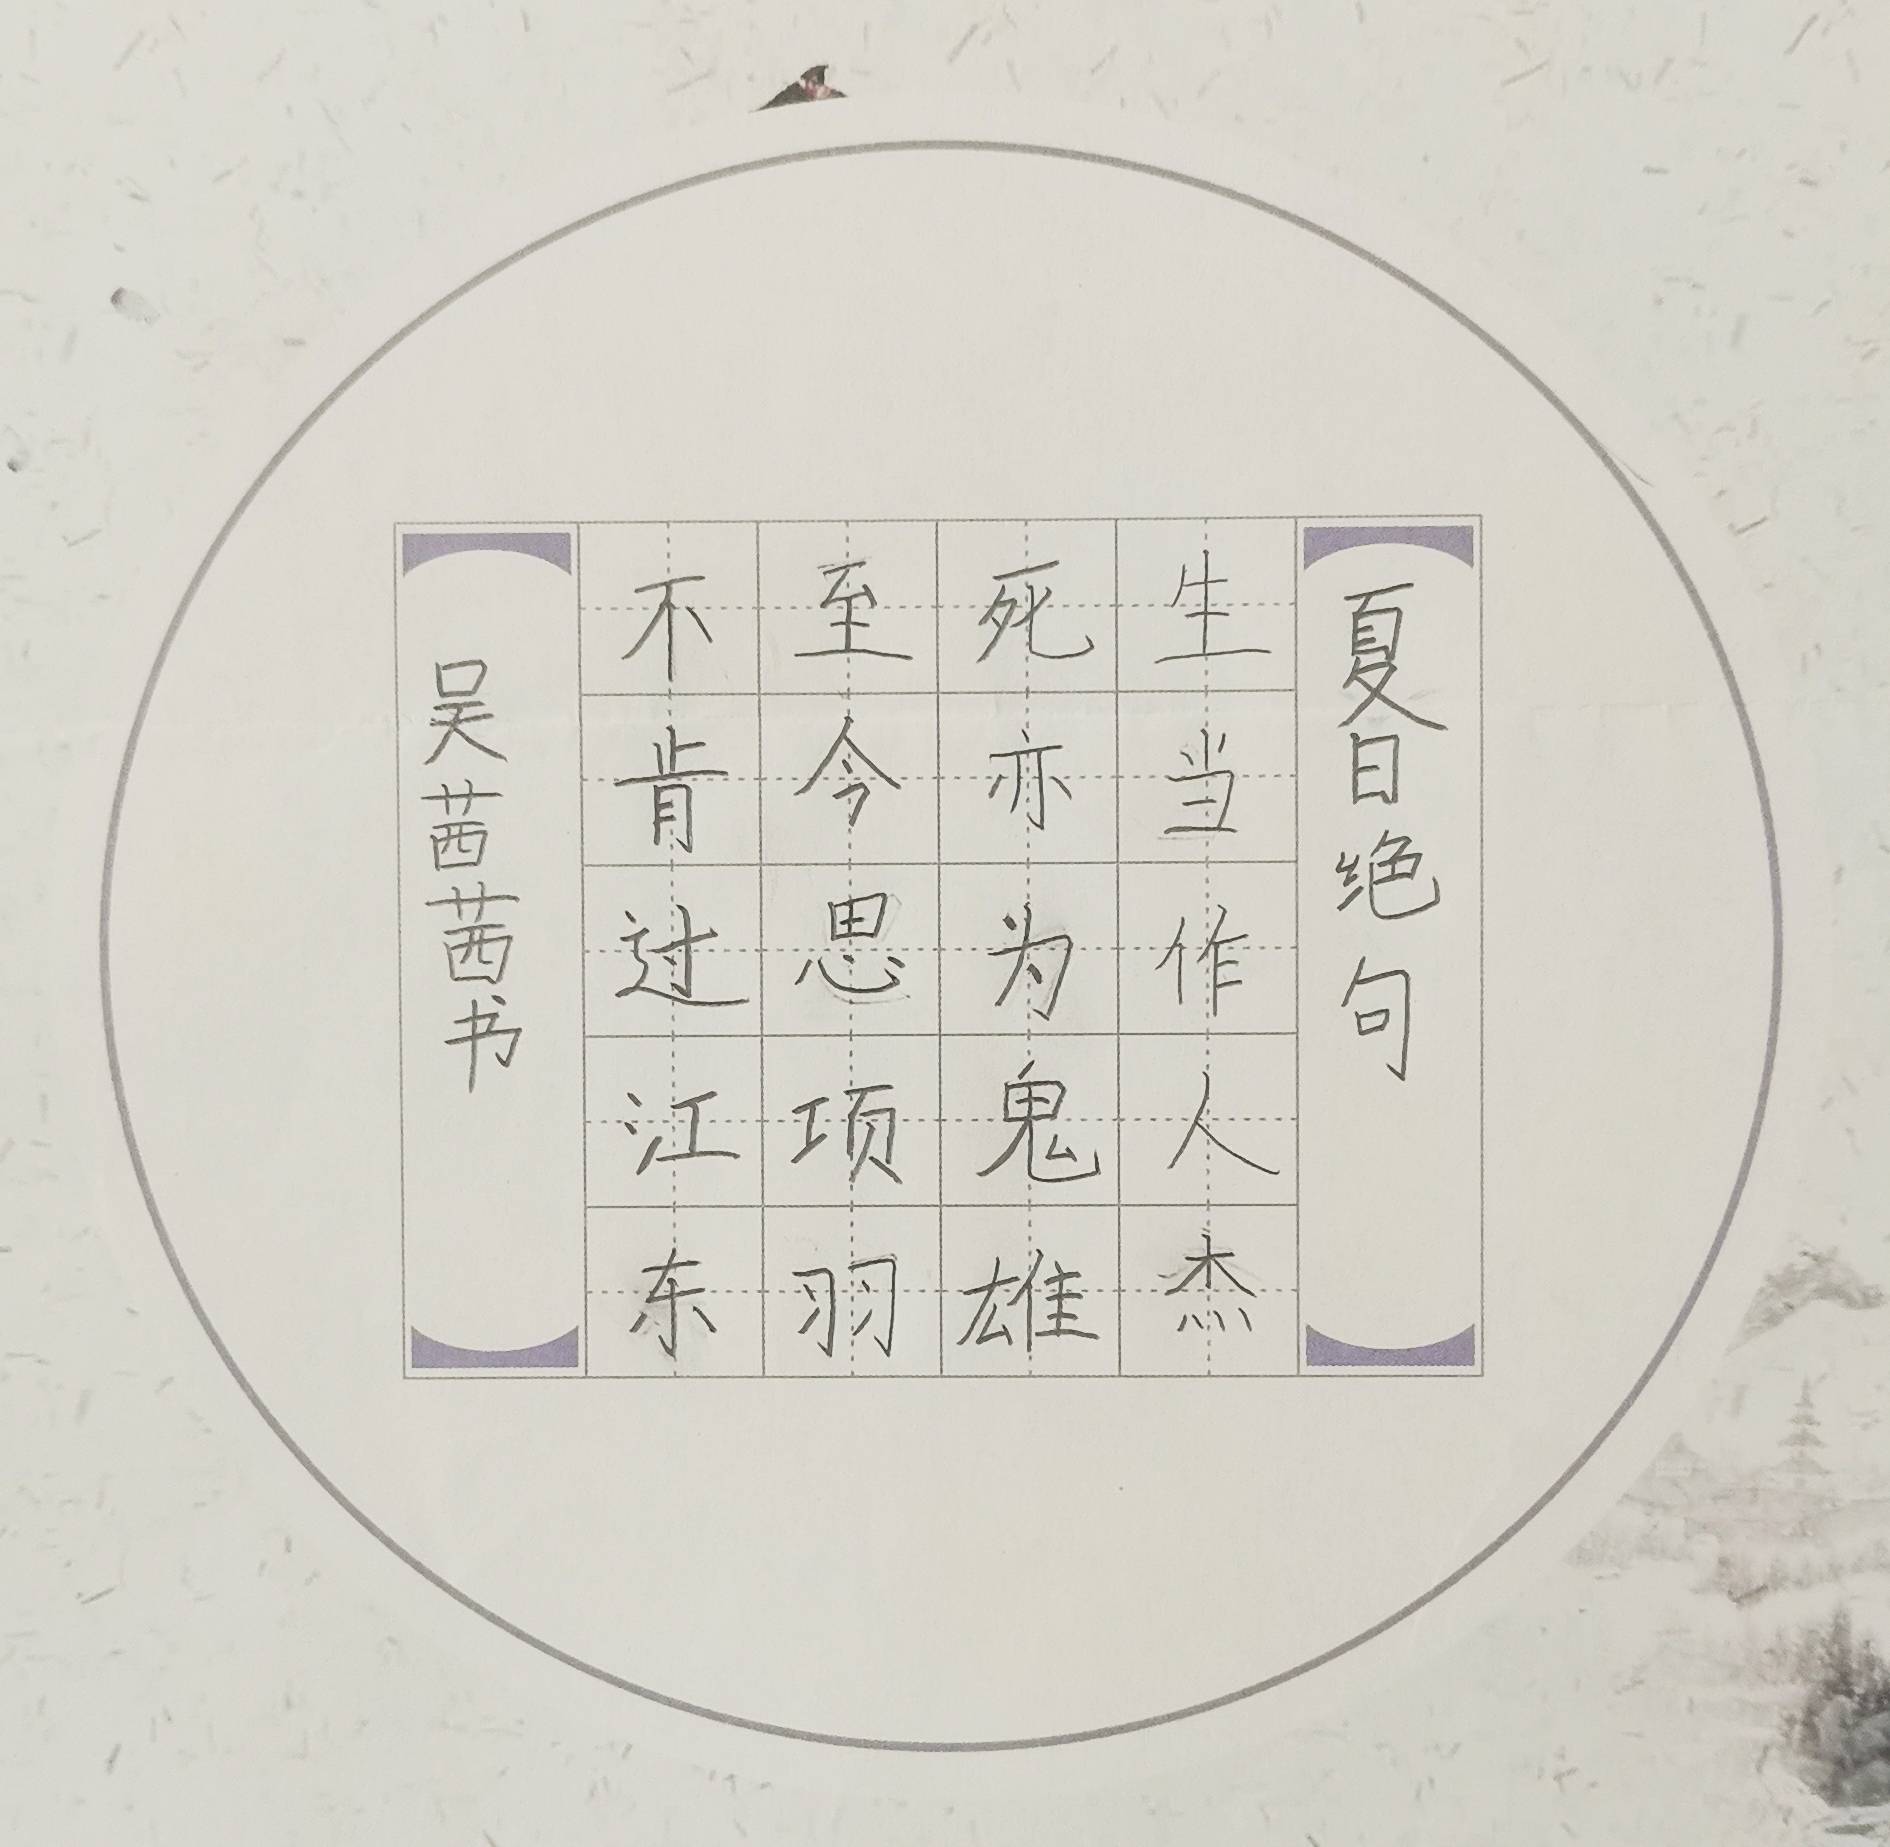 夏日绝句
生当作人杰
死亦为鬼雄
至今思项羽
不肯过江东
吴茜茜书